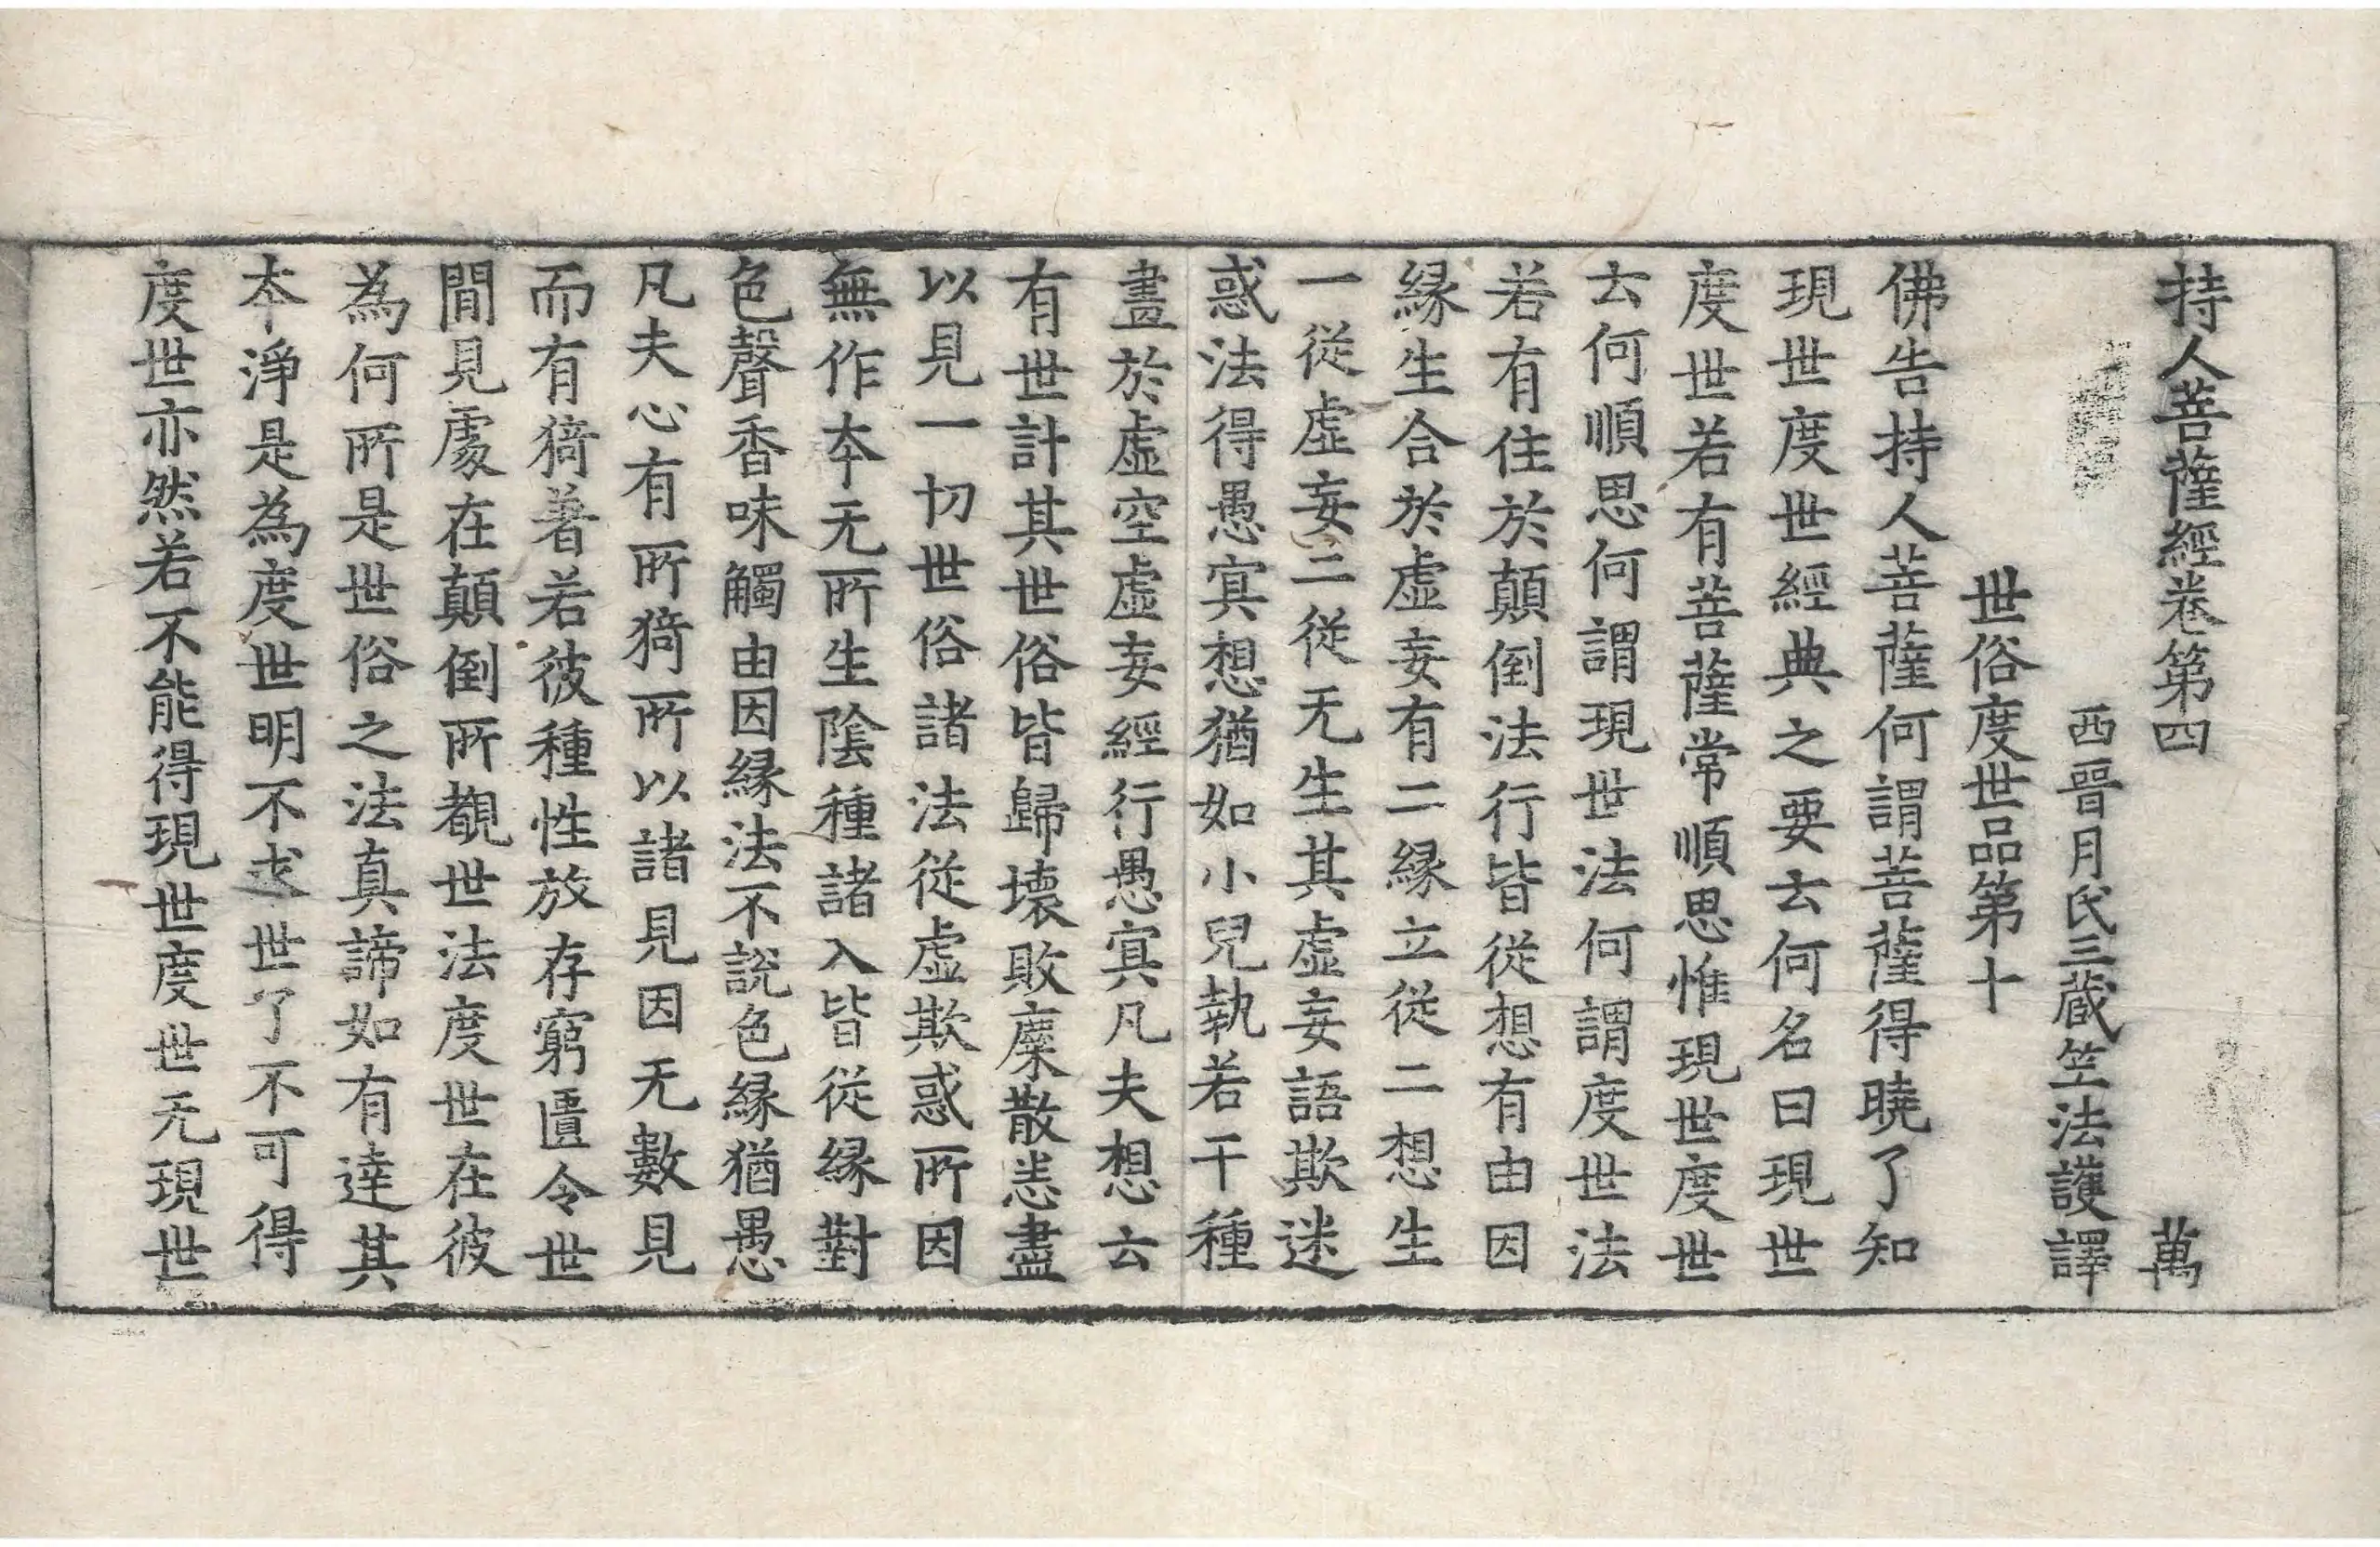 持人菩薩經卷第四 萬
西晉月氏三藏竺法護譯
世俗度世品第十
佛告持人菩薩何謂菩薩得曉了知
現世度世經典之要去何名曰現世
度世若有菩薩常順思惟現世度世
去何順思何謂現世法何謂度世法
若有住於顛倒法行皆從想有由因
緣生合於虛妄有二緣立從二想生
一從虛妄二從无生其虛妄語欺迷
惑法得愚冥想猶如小兒執若干種
晝於虛空虛妄經行愚冥凡夫想云
有世計其世俗皆歸壞敗糜散恙盡
以見一切世俗諸法從虛欺惑所因
無作本无所生陰種諸入皆從緣對
色聲香味觸由因緣法不說色緣猶愚
凡夫心有所猗所以諸見因无數見
而有猗著若彼種性放存窮匱令世
間見處在顛倒所覩世法度世在彼
為何所是世俗之法真諦如有達其
本淨是為度世明不求世了不可得
度世亦然若不能得現世度世无現世